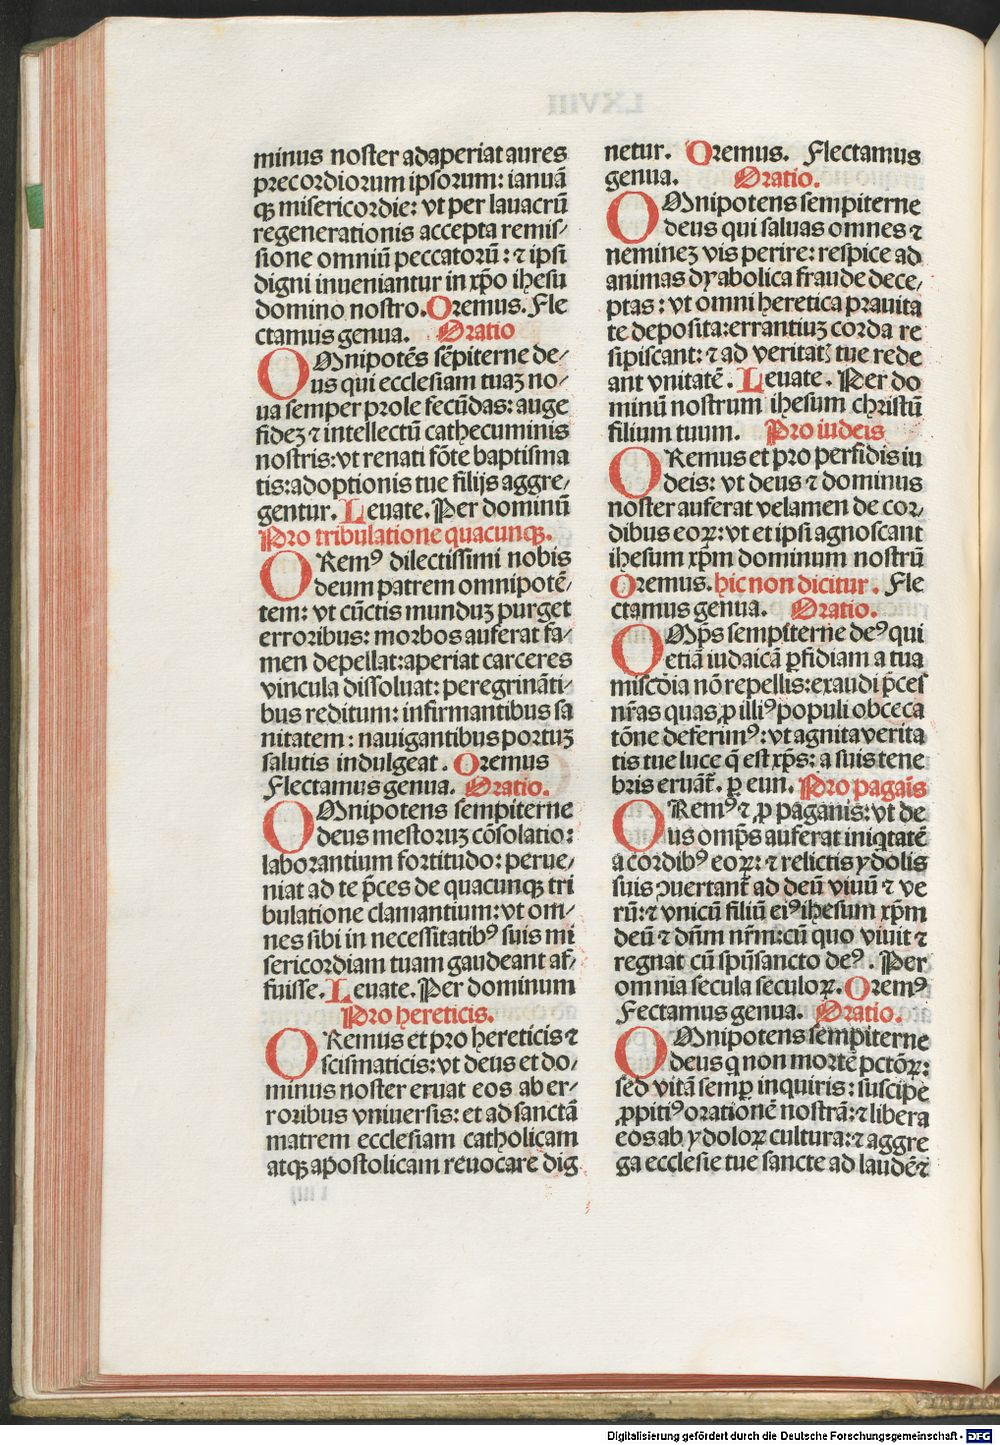 minus noster adaperiat aures
precordiorum ipsorum: ianuā
qꝫ misericordie: vt per lauacrū
regenerationis accepta remis/
sione omniū peccatorū: ⁊ ipsi
digni inueniantur in xp̄o ihesu
domino nostro. Oremus. Fle
ctamus genua. Oratio
OMnipotēs sēpiterne de/
us qui ecclesiam tuaꝫ no/
ua semper prole fecūdas: auge
fideꝫ ⁊ intellectū cathecuminis
nostris: vt renati fōte baptisma
tis: adoptionis tue filijs aggre/
gentur. Leuate. Per dominū
Pro tribulatione quacunqꝫ.
ORemꝰ dilectissimi nobis
deum patrem omnipotē/
tem: vt cūctis munduꝫ purget
erroribus: morbos auferat fa/
men depellat: aperiat carceres
vincula dissoluat: peregrināti/
bus reditum: infirmantibus sa
nitatem: nauigantibus portuꝫ
salutis indulgeat. Oremus
Flectamus genua. Oratio.
OMnipotens sempiterne
deus mestoruꝫ cōsolatio:
laborantium fortitudo: perue/
niat ad te p̄ces de quacunqꝫ tri
bulatione clamantium: vt om/
nes sibi in necessitatibꝰ suis mi
sericordiam tuam gaudeant af/
fuisse. Leuate. Per dominum
Pro hereticis.
ORemus et pro hereticis ⁊
scismaticis: vt deus et do/
minus noster eruat eos ab er/
roribus vniuersis: et ad sanctā
matrem ecclesiam catholicam
atqꝫ apostolicam reuocare dig
netur. Oremus. Flectamus
genua. Oratio.
OMnipotens sempiterne
deus qui saluas omnes ⁊
nemineꝫ vis perire: respice ad
animas dyabolica fraude dece/
ptas: vt omni heretica prauita
te deposita: errantiuꝫ corda re
sipiscant: ⁊ ad veritatꝭ tue rede
ant vnitatē. Leuate. Per do
minū nostrum ihesum christū
filium tuum. Pro iudeis
ORemus et pro perfidis iu
deis: vt deus ⁊ dominus
noster auferat velamen de cor/
dibus eoꝝ: vt et ipsi agnoscant
ihesum xp̄m dominum nostrū
Oremus. hic non dicitur. Fle
ctamus genua. Oratio.
OMp̄s sempiterne deꝰ qui
etiā iudaicā ꝑfidiam a tua
miscd̄ia nō repellis: exaudi p̄ces
nr̄as quas ꝓ illiꝰ populi obceca
tōne deferimꝰ: vt agnita verita
tis tue luce q̄ est xp̄s: a suis tene
bris eruāt̄. ꝑ eun. Pro pagāis
ORemꝰ ⁊ ꝓ paganis: vt de
us omp̄s auferat iniqtatē
a cordibꝰ eoꝝ: ⁊ relictis ydolis
suis ꝯuertant̄ ad deū viuū ⁊ ve
rū: ⁊ vnicū filiū eiꝰ ihesum xp̄m
deū ⁊ dn̄m nr̄m: cū quo viuit ⁊
regnat cū spū sancto deꝰ. Per
omnia secula seculoꝝ. Oremꝰ
Fectamus genua. Oratio.
OMnipotens sempiterne
deus q non mortē pctōꝝ:
sed vitā semꝑ inquiris: suscipe
ꝓpitiꝰ orationē nostrā: ⁊ libera
eos ab ydoloꝝ cultura: ⁊ aggre
ga ecclesie tue sancte ad laudē ⁊
Digitalisierung gefördert durch die Deutsche Forschungsgemeinschaft - DFG